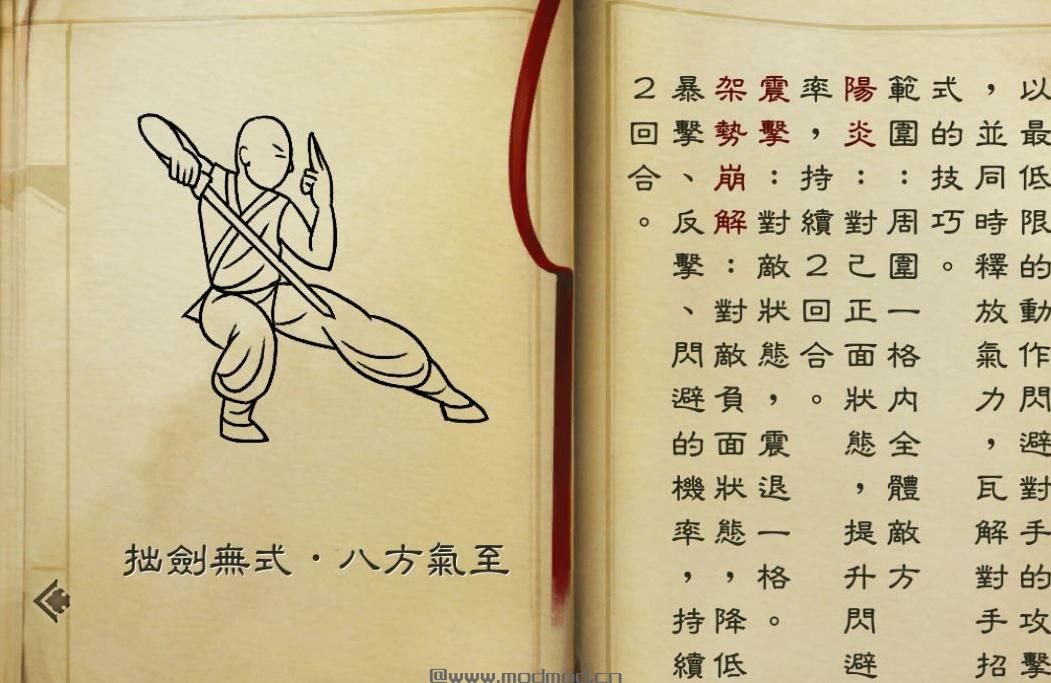 以最低限的動作閃避對手的攻擊
，並同時釋放氣力，瓦解對手招
式的技巧。
範圍：周圍一格內全體敵方
陽炎：對己正面狀態，提升閃避
率，持續2回合。
震擊：對敵狀態，震退一格。
架勢崩解：對敵負面狀態，降低
暴擊、反擊、閃避的機率，持續
2回合。
拙劍無式·八方氣至
@www.modmod.cn